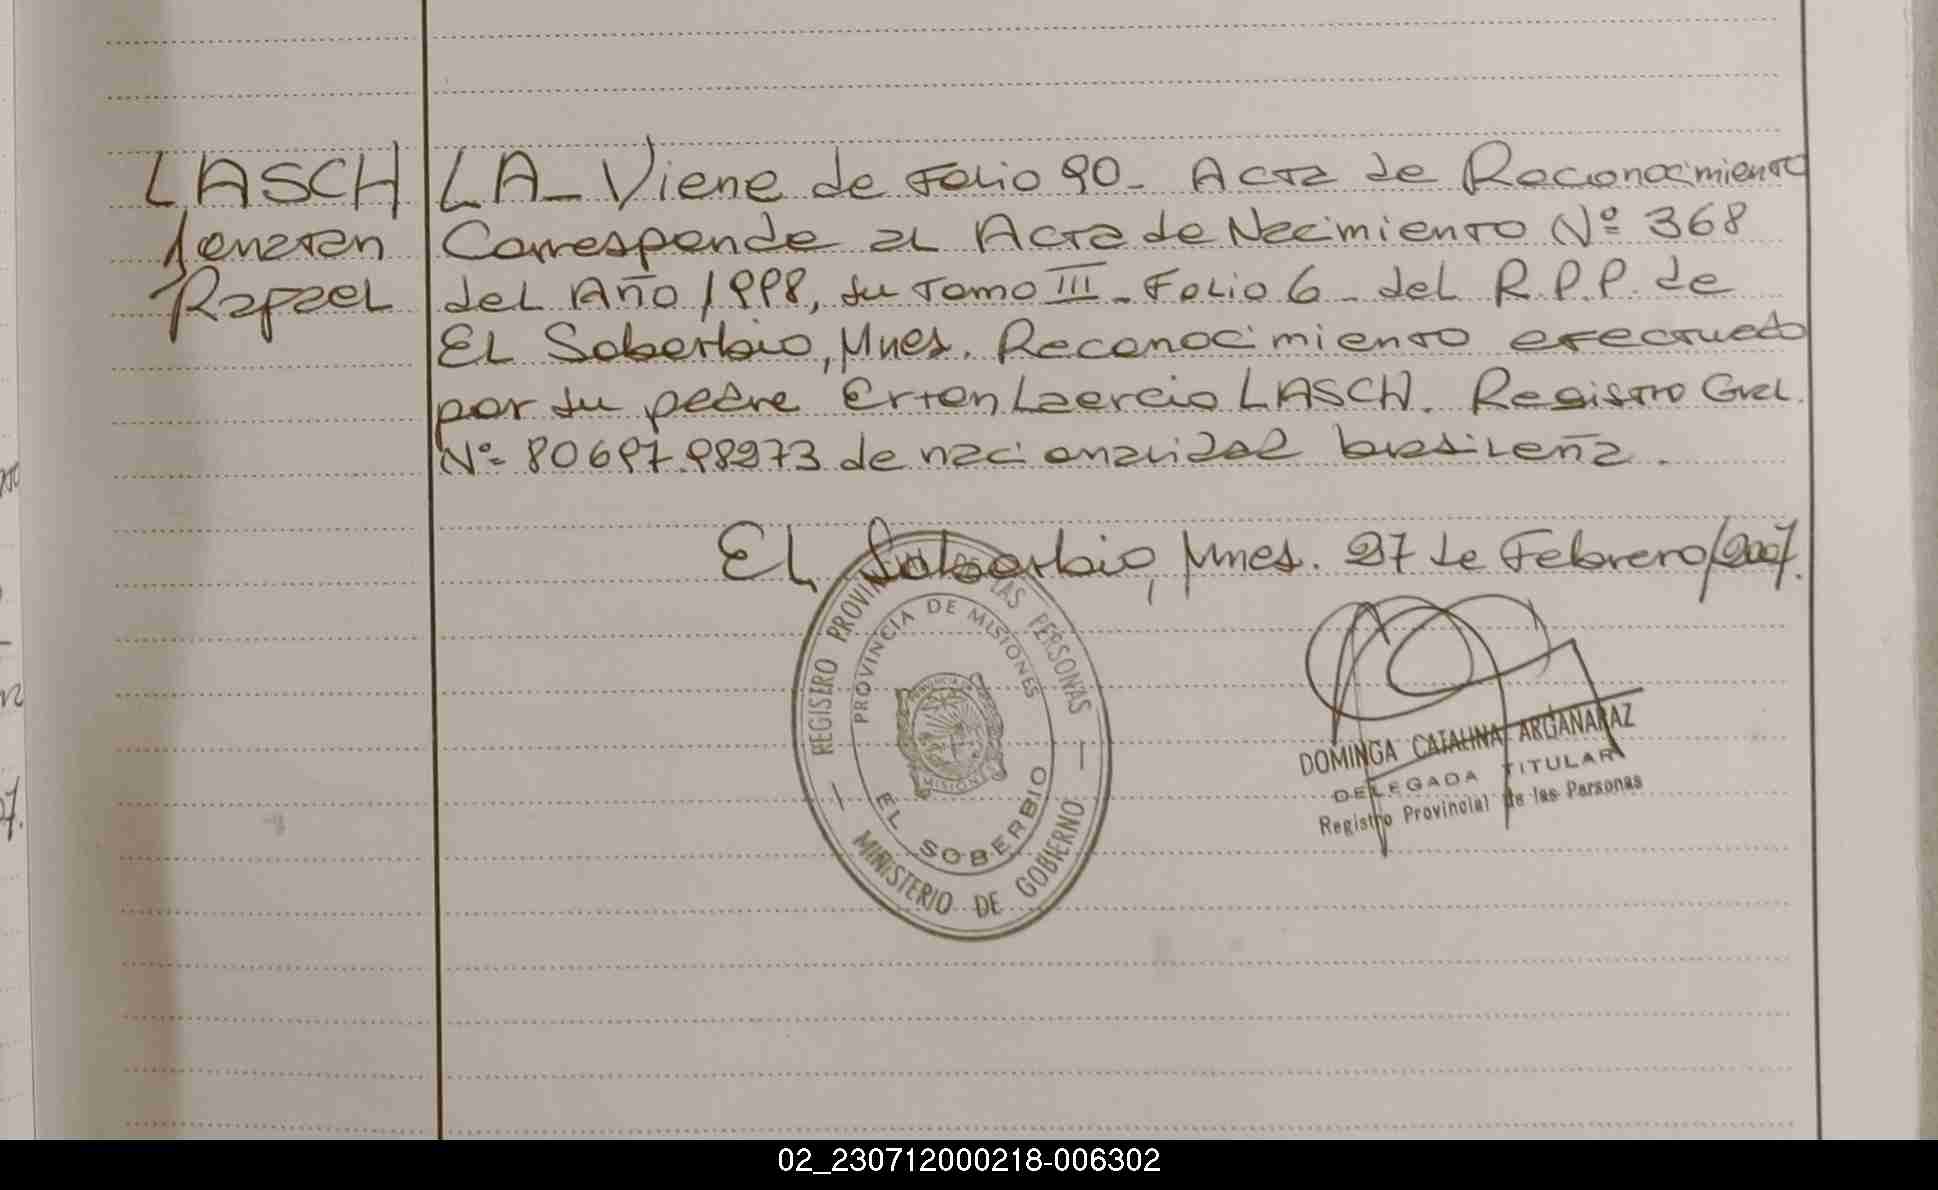 LASCH
Jonatan
Rafael
LA_ Viene de Folio 90_ Acta de Reconocimiento
Corresponde al Acta de Nacimiento Nº 368
del Año 1998, su Tomo III_ Folio 6_ del R.P.P. de
El Soberbio, Mnes. Reconocimiento efectuado
por su padre Erton Laercio LASCH. Registro Gral.
Nº 8069798973 de nacionalidad brasileña.
El Soberbio, Mnes. 27 de Febrero/2007.
REGISTRO PROVINCIAL DE LAS PERSONAS
PROVINCIA DE MISIONES
MISIONES
EL SOBERBIO
MINISTERIO DE GOBIERNO
DOMINGA CATALINA ARGAÑARAZ
DELEGADA TITULAR
Registro Provincial de las Personas
02_230712000218-006302